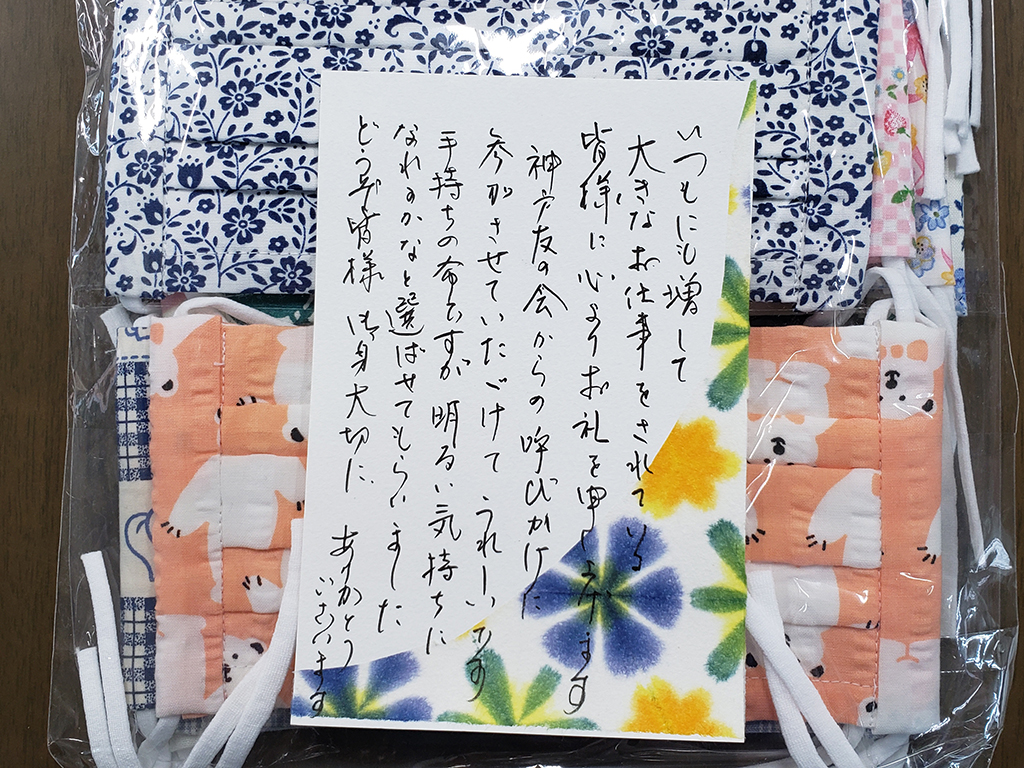 いつもにも増して
大きなお仕事をされている
皆様に心よりお礼を申し上げます
神戸友の会からの呼びかけに
参加させていただけてうれしいです
手持ちの布ですが明るい気持ちに
なれるかなと選ばせてもらいました
どうぞ皆様 御身大切に
ありがとう
ございます